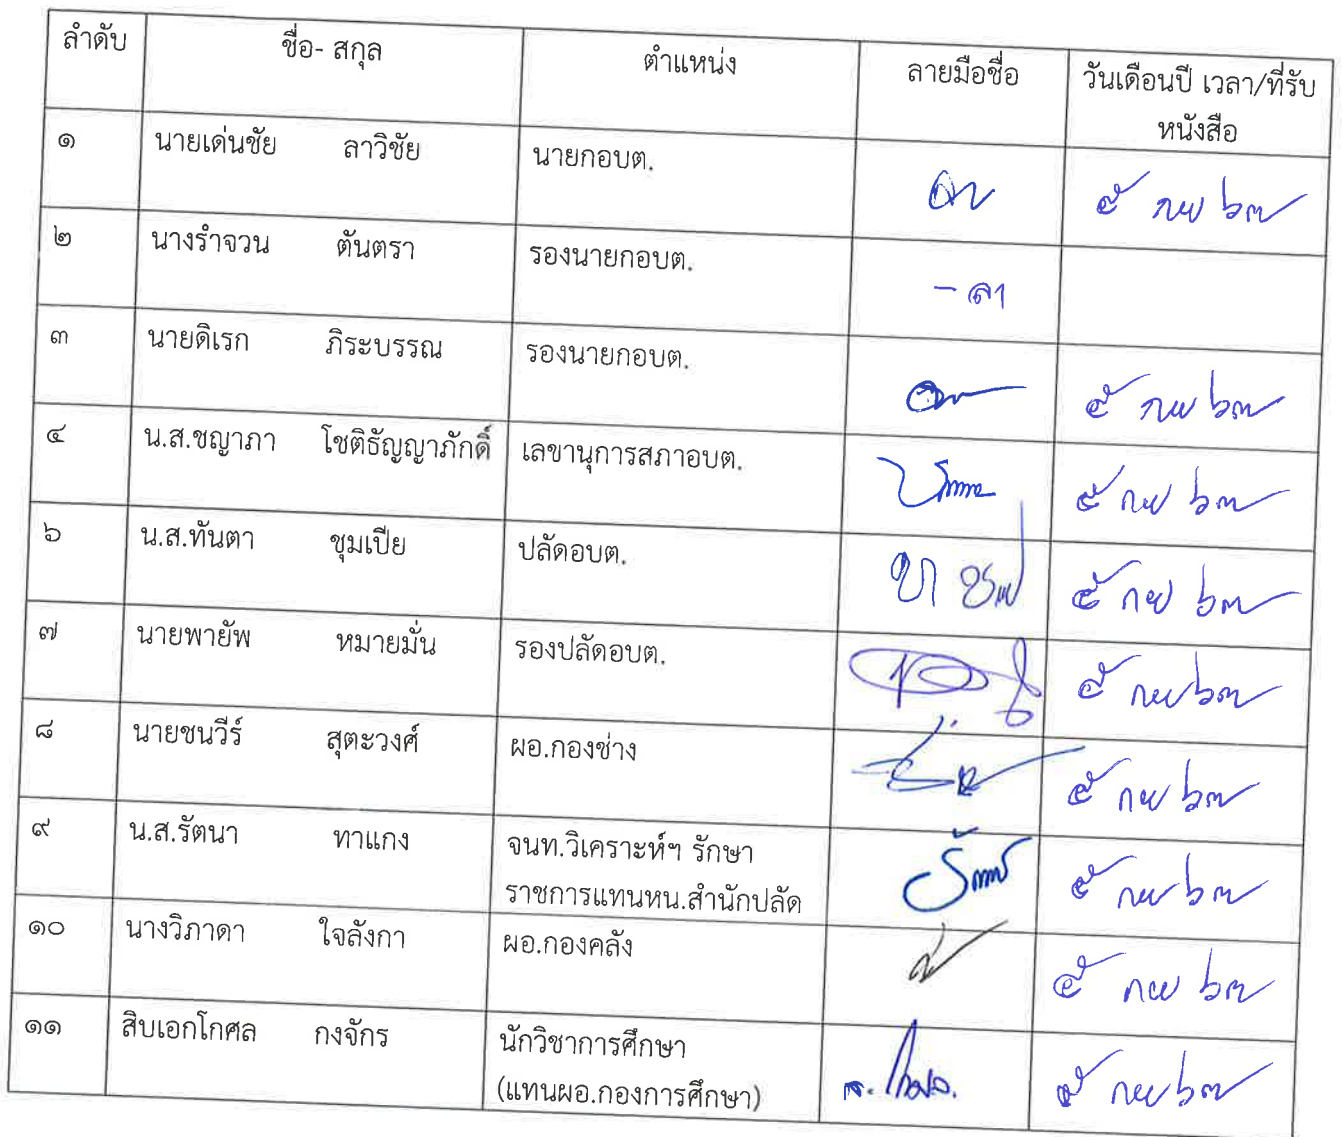 ลำดับ ชื่อ- สกุล ตำแหน่ง ลายมือชื่อ วันเดือนปี เวลา/ที่รับ
หนังสือ
๑ นายเด่นชัย ลาวิชัย นายกอบต. ๕ กย ๖๓
๒ นางรำจวน ตันตรา รองนายกอบต. - ลา
๓ นายดิเรก ภิระบรรณ รองนายกอบต. ๕ กย ๖๓
๔ น.ส.ชญาภา โชติธัญญาภักดิ์ เลขานุการสภาอบต. ๕ กย ๖๓
๖ น.ส.ทันตา ชุมเปีย ปลัดอบต. ๕ กย ๖๓
๗ นายพายัพ หมายมั่น รองปลัดอบต. ๕ กย ๖๓
๘ นายชนวีร์ สุตะวงศ์ ผอ.กองช่าง ๕ กย ๖๓
๙ น.ส.รัตนา ทาแกง จนท.วิเคราะห์ฯ รักษา ๕ กย ๖๓
ราชการแทนหน.สำนักปลัด
๑๐ นางวิภาดา ใจลังกา ผอ.กองคลัง ๕ กย ๖๓
๑๑ สิบเอกโกศล กงจักร นักวิชาการศึกษา ๕ กย ๖๓
(แทนผอ.กองการศึกษา)